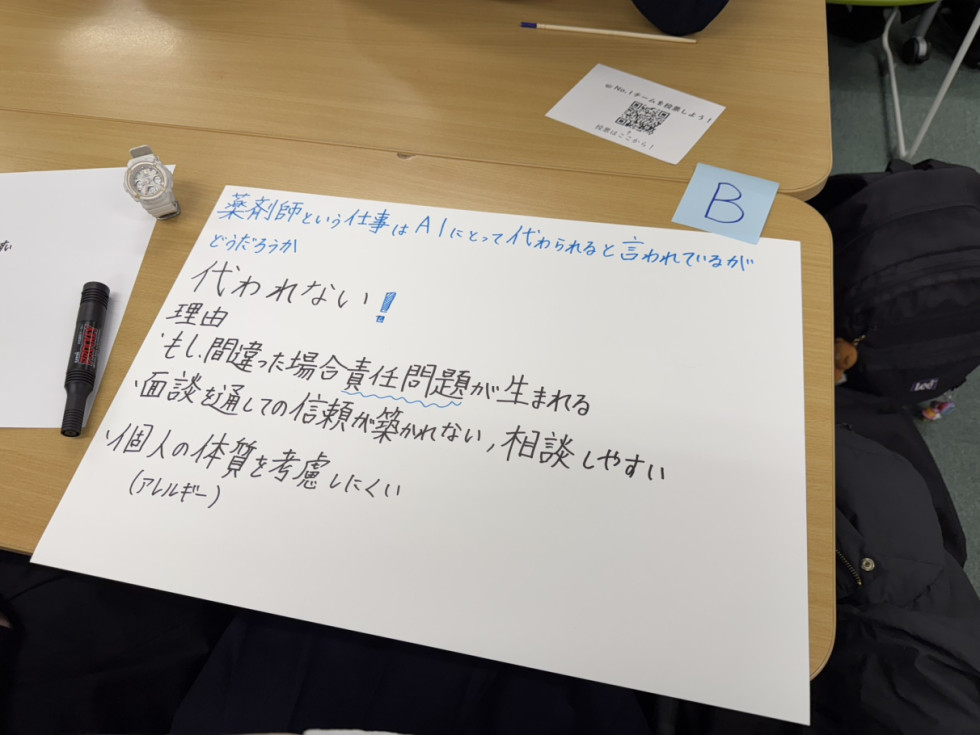 No.1チームを投票しよう!
投票はここから!
B
薬剤師という仕事はAIにとって代わられると言われているが
どうだろうか
代われない!
理由
・もし、間違った場合責任問題が生まれる
・面談を通しての信頼が築かれない,相談しやすい
・個人の体質を考慮しにくい
(アレルギー)
Lee